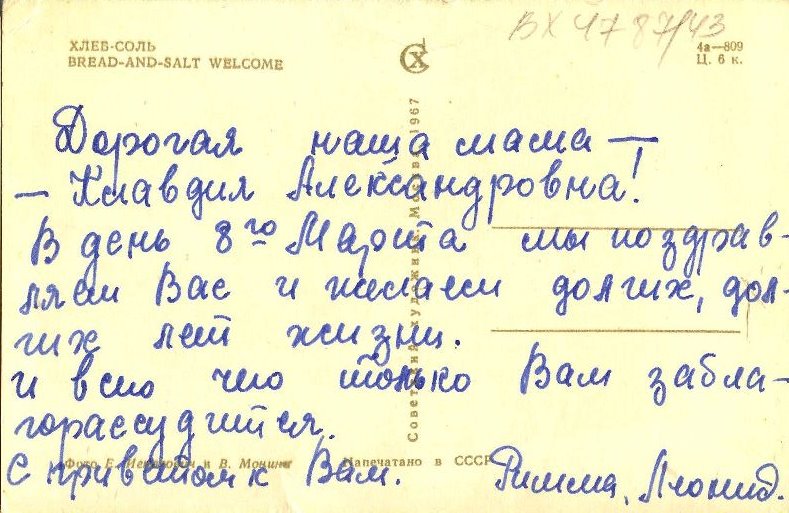 ВХ 4787/43
ХЛЕБ-СОЛЬ
BREAD-AND-SALT WELCOME
СХ
4а—809
Ц. 6 к.
Дорогая наша мама —
— Клавдия Александровна!
В день 8го Марта мы поздрав-
ляем Вас и желаем долгих, дол-
гих лет жизни.
и всю что только Вам забла-
горассудится.
С приветом к Вам. Римма, Леонид.
Советский художник. Москва. 1967
Фото Е. и В.
Напечатано в СССР